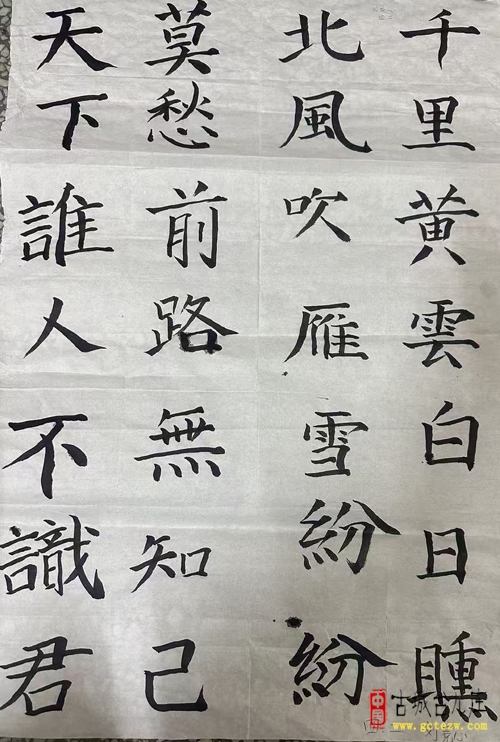 千里黄雲白日曛
北風吹雁雪紛紛
莫愁前路無知己
天下誰人不識君
www.gctezw.com